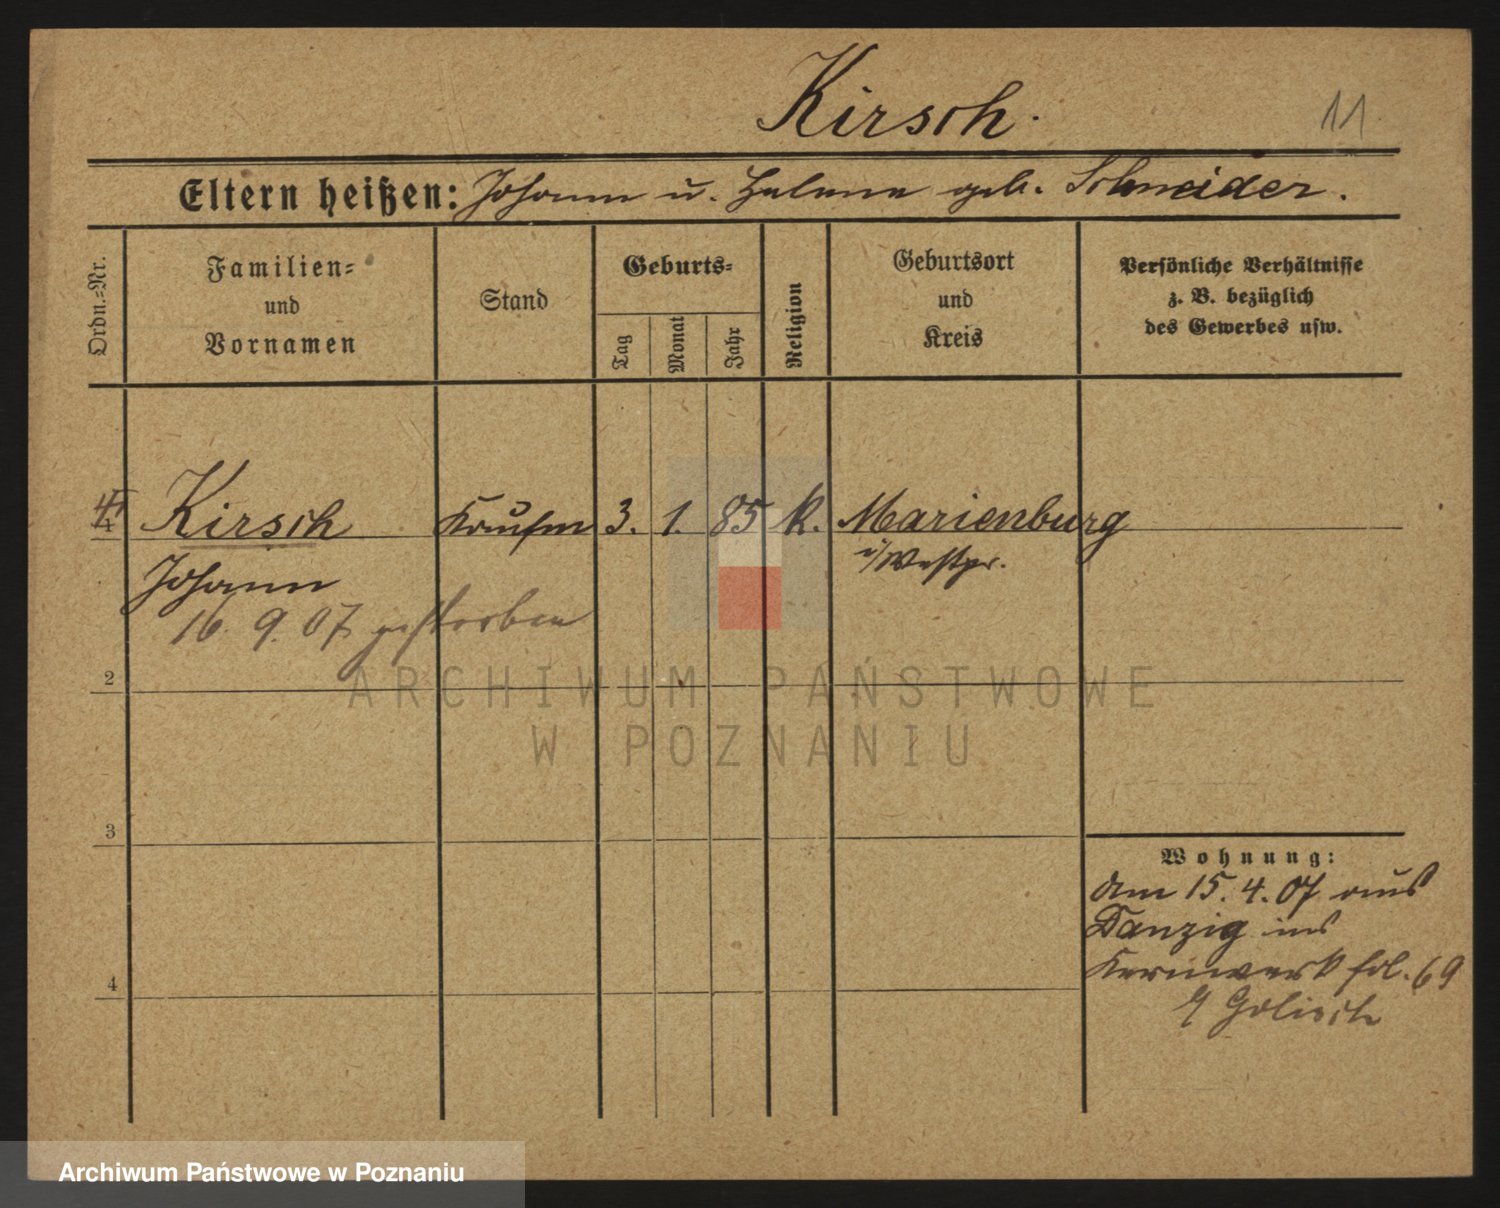 Kirsch.
11
Eltern heißen: Johann u. Helene geb. Schneider.
Ordn.=Nr.
Familien=
und
Vornamen
Stand
Geburts=
Tag
Monat
Jahr
Religion
Geburtsort
und
Kreis
Persönliche Verhältnisse
z. B. bezüglich
des Gewerbes usw.
Kirsch Kaufm 3. 1. 85 k. Marienburg
i/Westpr.
Johann
16. 9. 07 gestorben
2
3
4
Wohnung:
Am 15. 4. 07 aus
Danzig ins
Kernwerk fol. 69
Golisch
ARCHIWUM PAŃSTWOWE
W POZNANIU
Archiwum Państwowe w Poznaniu